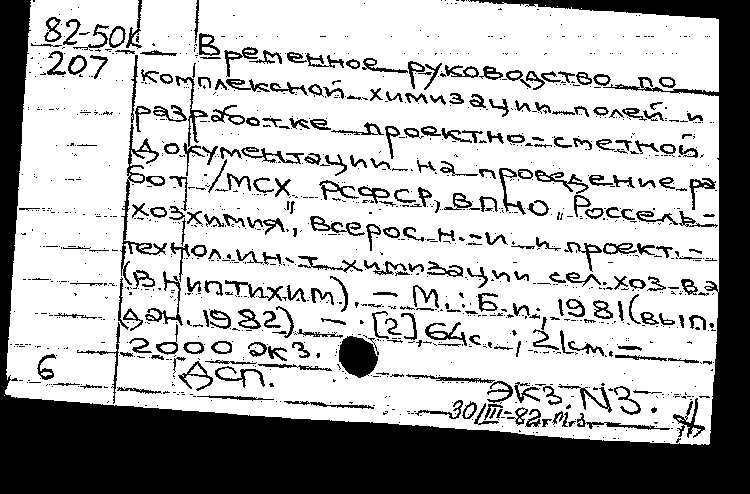 82-50К.
207
Временное руководство по
комплексной химизации полей и
разработке проектно-сметной
документации на проведение ра
бот :/МСХ РСФСР, ВПНО „Россель-
хозхимия", Всерос. н.-и. и проект.-
технол. ин-т химизации сел. хоз-ва
(ВНИПТИХИМ). – М.: Б.и., 1981 (вып.
дан. 1982). – [2], 64с. ; 21см. –
2000 экз.
6
ДСП.
ЭКЗ. N3.
30/III-82г.